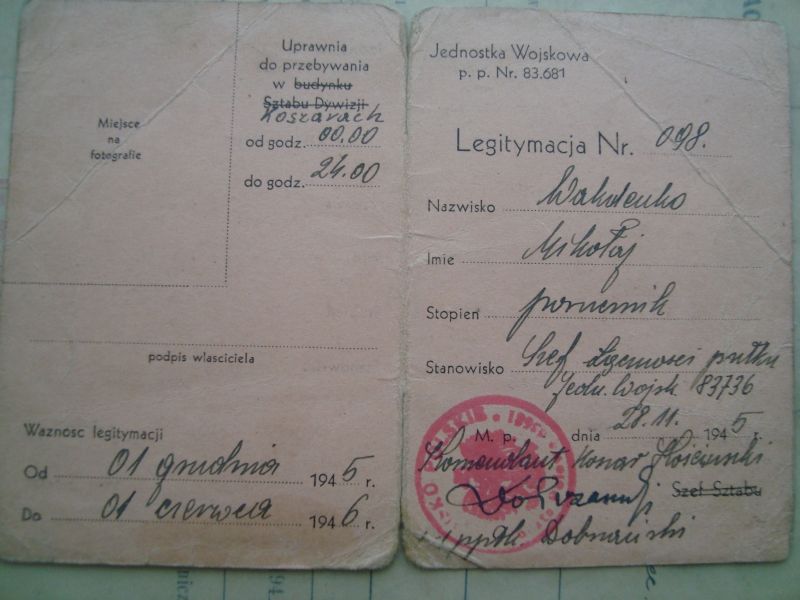 Uprawnia
do przebywania
w budynku
Sztabu Dywizji
Koszarach
od godz. 00.00
do godz. 24.00
Miejsce
na
fotografie
podpis wlasciciela
Waznosc legitymacji
Od 01 grudnia 1945 r.
Do 01 czerwca 1946 r.
Jednostka Wojskowa
p. p. Nr. 83.681
Legitymacja Nr. 098.
Nazwisko
Imie Mikołaj
Stopień porucznik
Stanowisko Szef Łączności pułku
Jedn. Wojsk 83736
M. p. dnia 28.11. 1945 r.
Komendant
Szef Sztabu
ppłk.